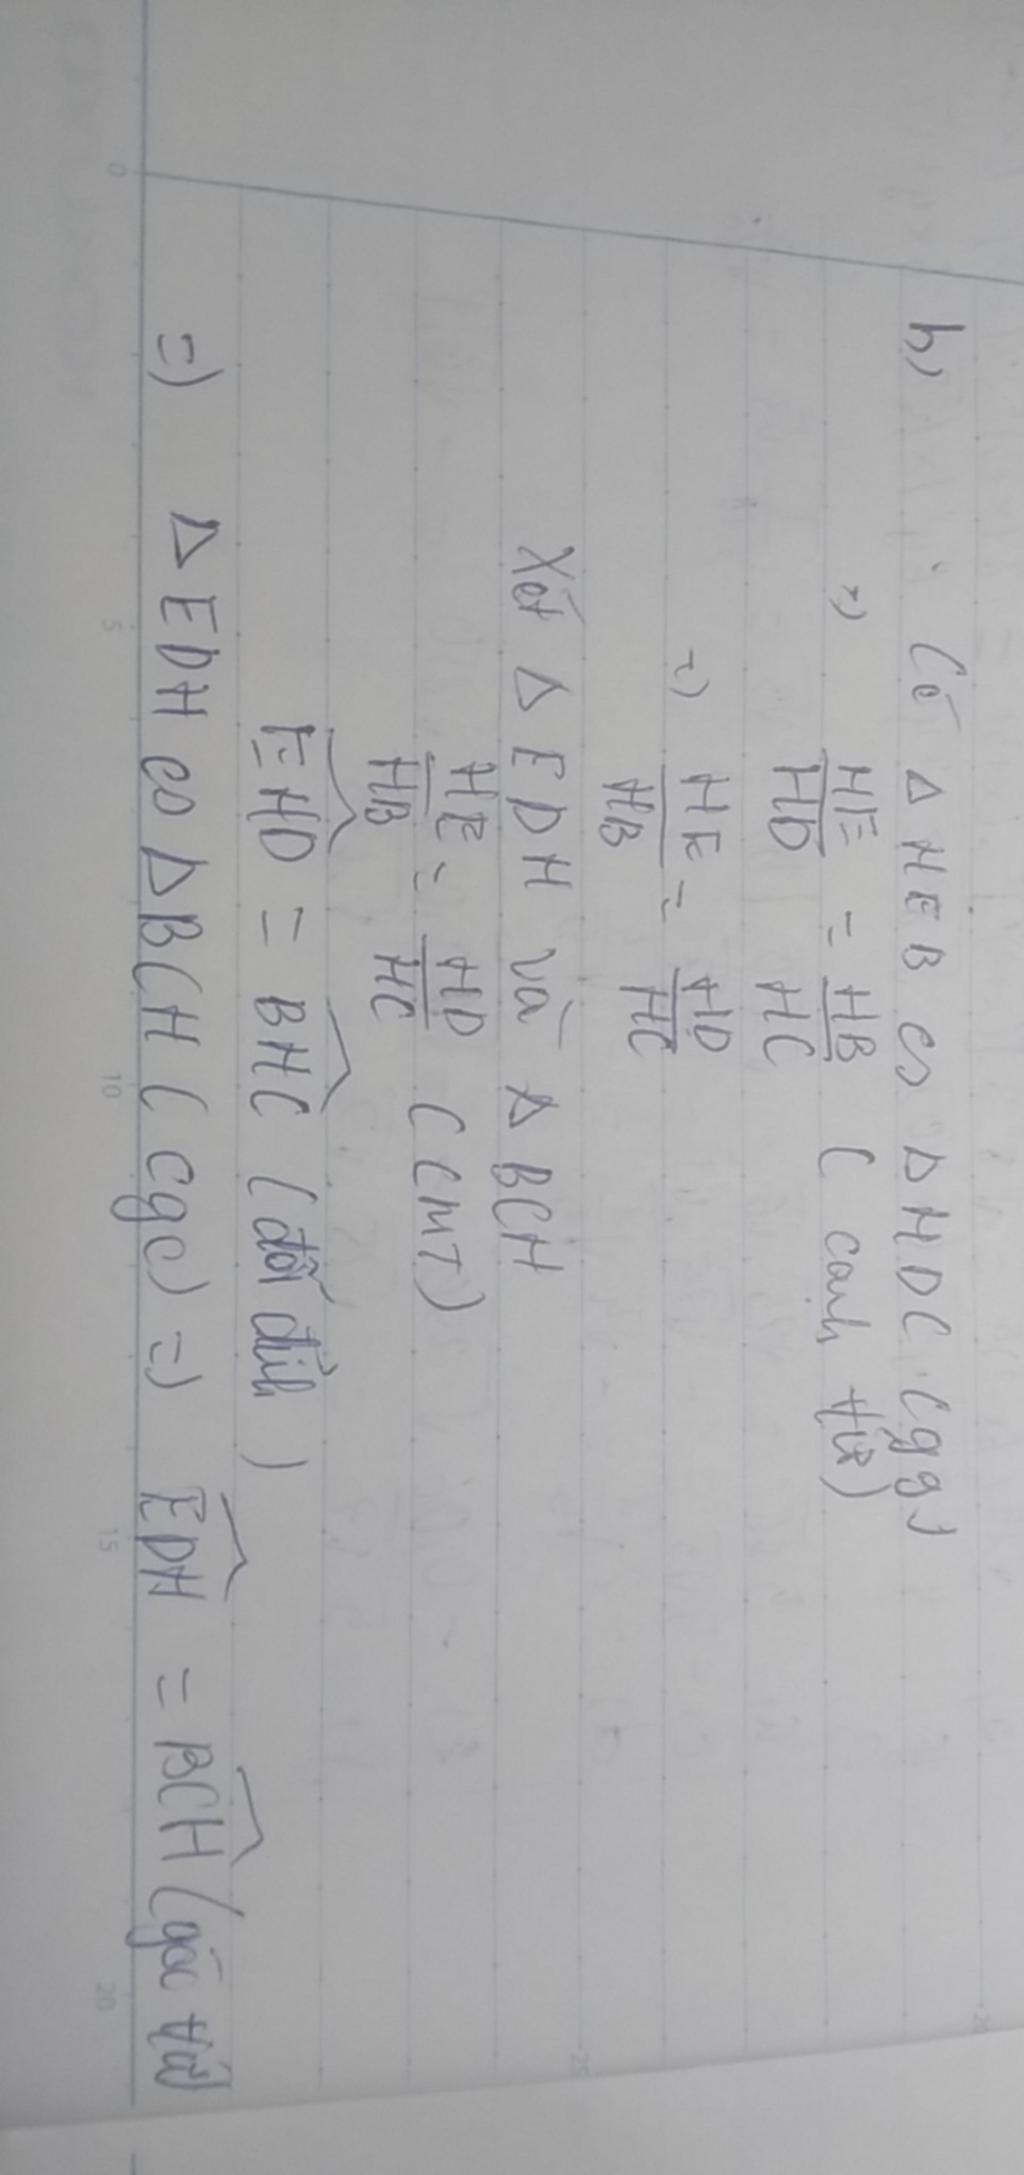 b) Có Δ HEB ∽ Δ HDC (gg)
=) HE/HD = HB/HC (cạnh tư)
=) HE/HB = HD/HC
Xét Δ EDH và Δ BCH
HE/HB = HD/HC (CMT)
EHD = BHC (đối đỉnh)
=) Δ EDH ∽ Δ BCH (cgc) =) EDH = BCH (góc tư)
0 5 10 15 20
25